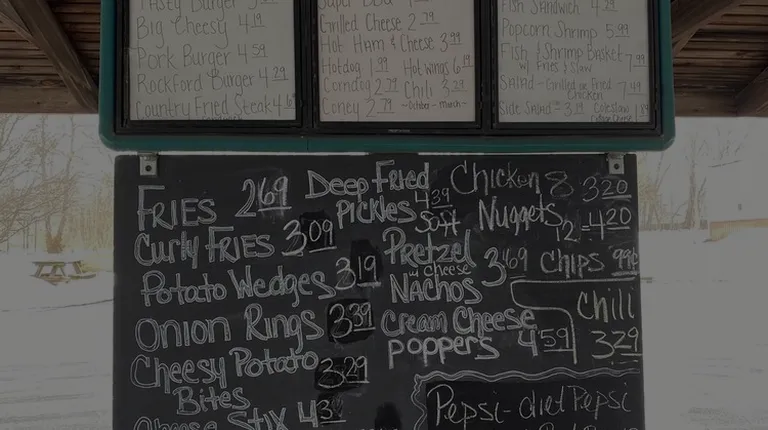 Tasty Burger
Big Cheesy 4.19
Pork Burger 4.59
Rockford Burger 4.29
Country Fried Steak 4.69
Super BBQ
Grilled Cheese 2.79
Hot Ham & Cheese 3.99
Hotdog 1.99 Hot wings 6.19
Corndog 2.79 Chili 3.29
Coney 2.79 -October - March-
Fish Sandwich 4.29
Popcorn Shrimp 5.99
Fish & Shrimp Basket 7.99
w/ Fries & Slaw
Salad - Grilled or Fried 7.49
Chicken
Side Salad - 3.19 Coleslaw 1.89
FRIES 2.69
Curly FRIES 3.09
Potato Wedges 3.19
Onion Rings 3.39
Cheesy Potato
Bites 3.29
Cheese Stix
Deep Fried
Pickles 4.39
Soft
Pretzel
w/ cheese
Nachos 3.69
Cream Cheese
Poppers 4.59
Chicken 8 3.20
Nuggets 12=4.20
Chips 99¢
Chili
3.29
Pepsi-diet Pepsi